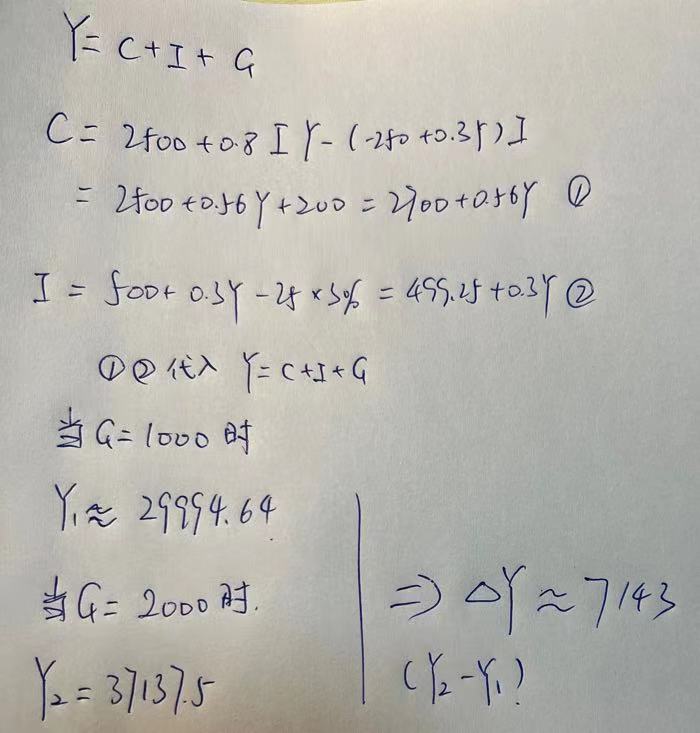 Y = C + I + G
C = 2500 + 0.8 [ Y - (-250 + 0.3Y) ]
= 2500 + 0.56Y + 200 = 2700 + 0.56Y ①
I = 500 + 0.3Y - 25 × 3% = 499.25 + 0.3Y ②
①② 代入 Y = C + I + G
当 G = 1000 时
Y₁ ≈ 29994.64
当 G = 2000 时.
Y₂ = 37137.5
=> △Y ≈ 7143
(Y₂ - Y₁)